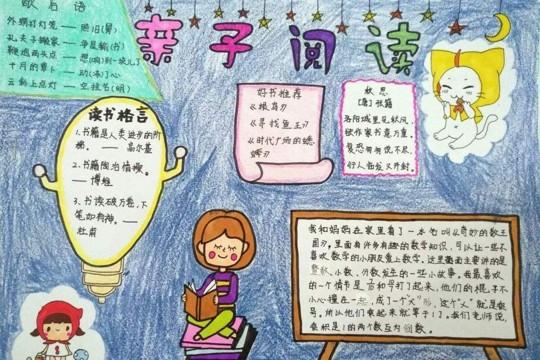 歇后语
外甥打灯笼 — 照旧(舅)
孔夫子搬家 — 是输(书)
鞭炮两头点 — 想(响)到一块儿了
十月的萝卜 — 动(冻)了心
上点灯 — 空挂(明)
亲子阅读
读书格言
1.书籍是人类进步的阶
梯。 —— 高尔基
2.书籍陶冶情操。
—— 博雅
3.书读破万卷,下
笔如有神。——
杜甫
好书推荐
《根鸟》
《寻找鱼王》
《时代广场的蟋
蟀》
秋思
[唐]张籍
洛阳城里见秋风,
欲作家书意万重。
复恐匆匆说不尽,
行人临发又开封。
我和妈妈在家里看了一本书叫《奇妙的数王
国》。里面有许多有趣的数学知识,可以让一些不
喜欢数学的小朋友爱上数学。这里面主要讲的是
整数、小数、分数发生的一些小故事。我最喜欢
的一个情节是 和 打了起来,他们的棍子不
小心撞在一起,成了一个"×"形,这个"×"就是乘
号。所以他们乘起来就等于1。我们老师说,
乘积是1的两个数互为倒数。